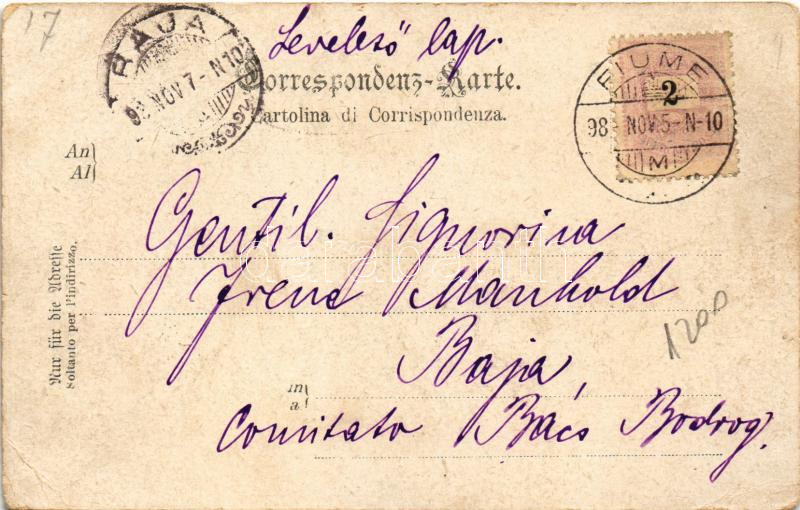 17
BAJA
98 NOV. 7 - N10
Levelező lap.
Correspondenz-Karte.
Cartolina di Corrispondenza.
FIUME
98 - NOV. 5 - N-10
M
2
An
Al
Gentil. Signorina
Irene Manhold
Baja,
in
a
Comitato Bács Bodrog.
Nur für die Adresse
Soltanto per l'indirizzo.
1200
darabanth